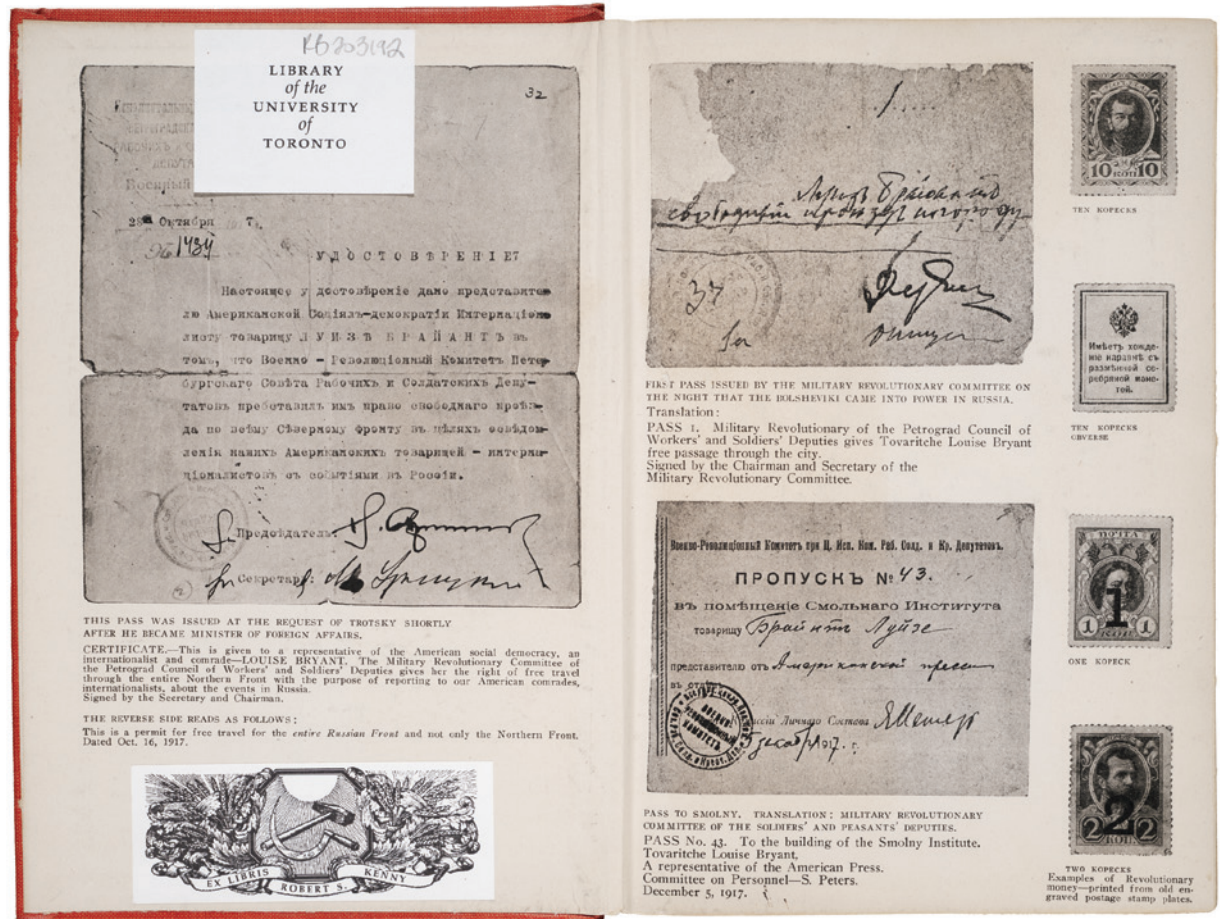 RB203192
LIBRARY
of the
UNIVERSITY
of
TORONTO
32
Военный
28 Октября 7
№ 1434
УДОСТОВѢРЕНІЕ
Настоящее удостовѣреніе дано представите-
лю Американской Соціалъ-демократіи Интернаціона
листу товарищу ЛУИЗѢ БРАЙАНТЪ въ
томъ, что Военно - Революціонный Комитетъ Петер-
бургскаго Совѣта Рабочихъ и Солдатскихъ Депу-
татовъ пребставилъ имъ право свободнаго проѣз-
да по всѣму Сѣверному фронту въ цѣляхъ освѣдом-
ленія нашихъ Американскихъ товарищей - интерна-
ціоналистовъ съ событіями въ Россіи.
Предсѣдатель:
Секретарь:
THIS PASS WAS ISSUED AT THE REQUEST OF TROTSKY SHORTLY
AFTER HE BECAME MINISTER OF FOREIGN AFFAIRS.
CERTIFICATE.—This is given to a representative of the American social democracy, an
internationalist and comrade—LOUISE BRYANT. The Military Revolutionary Committee of
the Petrograd Council of Workers' and Soldiers' Deputies gives her the right of free travel
through the entire Northern Front with the purpose of reporting to our American comrades,
internationalists, about the events in Russia.
Signed by the Secretary and Chairman.
THE REVERSE SIDE READS AS FOLLOWS:
This is a permit for free travel for the entire Russian Front and not only the Northern Front.
Dated Oct. 16, 1917.
EX LIBRIS
ROBERT S.
KENNY
37
FIRST PASS ISSUED BY THE MILITARY REVOLUTIONARY COMMITTEE ON
THE NIGHT THAT THE BOLSHEVIKI CAME INTO POWER IN RUSSIA.
Translation:
PASS 1. Military Revolutionary of the Petrograd Council of
Workers' and Soldiers' Deputies gives Tovaritche Louise Bryant
free passage through the city.
Signed by the Chairman and Secretary of the
Military Revolutionary Committee.
Военно-Революціонный Комитетъ при Ц. Исп. Ком. Раб. Солд. и Кр. Депутатовъ.
ПРОПУСКЪ № 43.
въ помѣщеніе Смольнаго Института
товарищу Брайантъ Луизе
представителю отъ Американской прессы
въ отдѣ
Комиссіи Личнаго Состава
5 декабр 1917. г.
PASS TO SMOLNY. TRANSLATION: MILITARY REVOLUTIONARY
COMMITTEE OF THE SOLDIERS' AND PEASANTS' DEPUTIES.
PASS No. 43. To the building of the Smolny Institute.
Tovaritche Louise Bryant.
A representative of the American Press.
Committee on Personnel—S. Peters.
December 5, 1917.
10 КОП 10
TEN KOPECKS
Имѣетъ хожде-
ніе наравнѣ съ
размѣнной се-
ребряной моне-
той.
TEN KOPECKS
OBVERSE
ПОЧТА
1
1 КОП. 1
ONE KOPECK
2
2 КОП. 2
TWO KOPECKS
Examples of Revolutionary
money—printed from old en-
graved postage stamp plates.